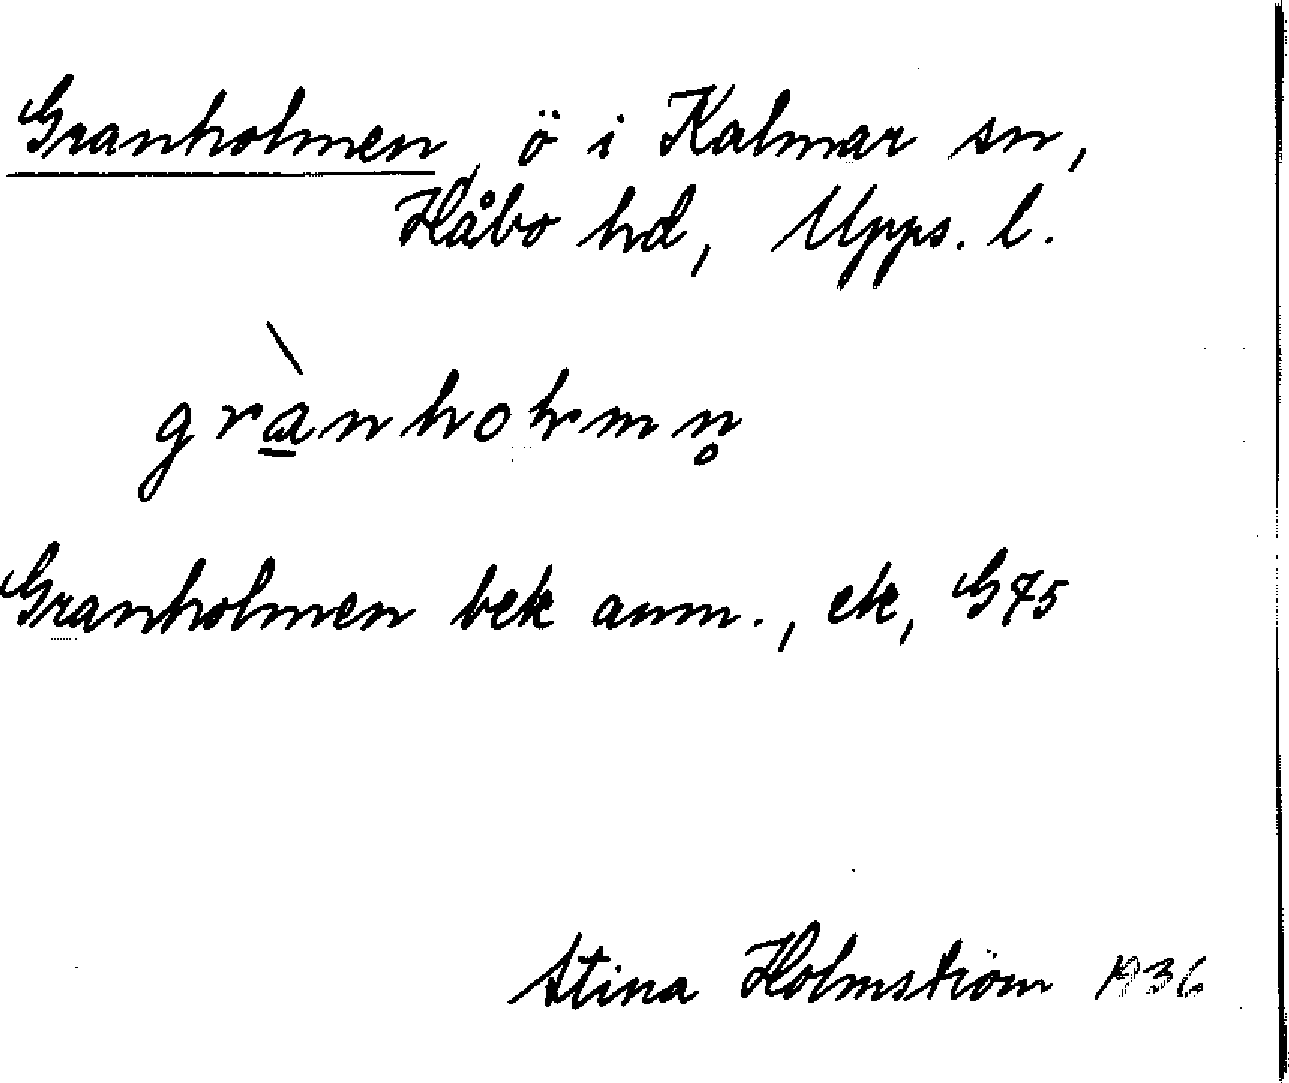 Granholmen, ö i Kalmar sn,
Håbo hd, Upps. l.
grànholmn̥
Granholmen bek anm., ek, G75
Stina Holmström 1936